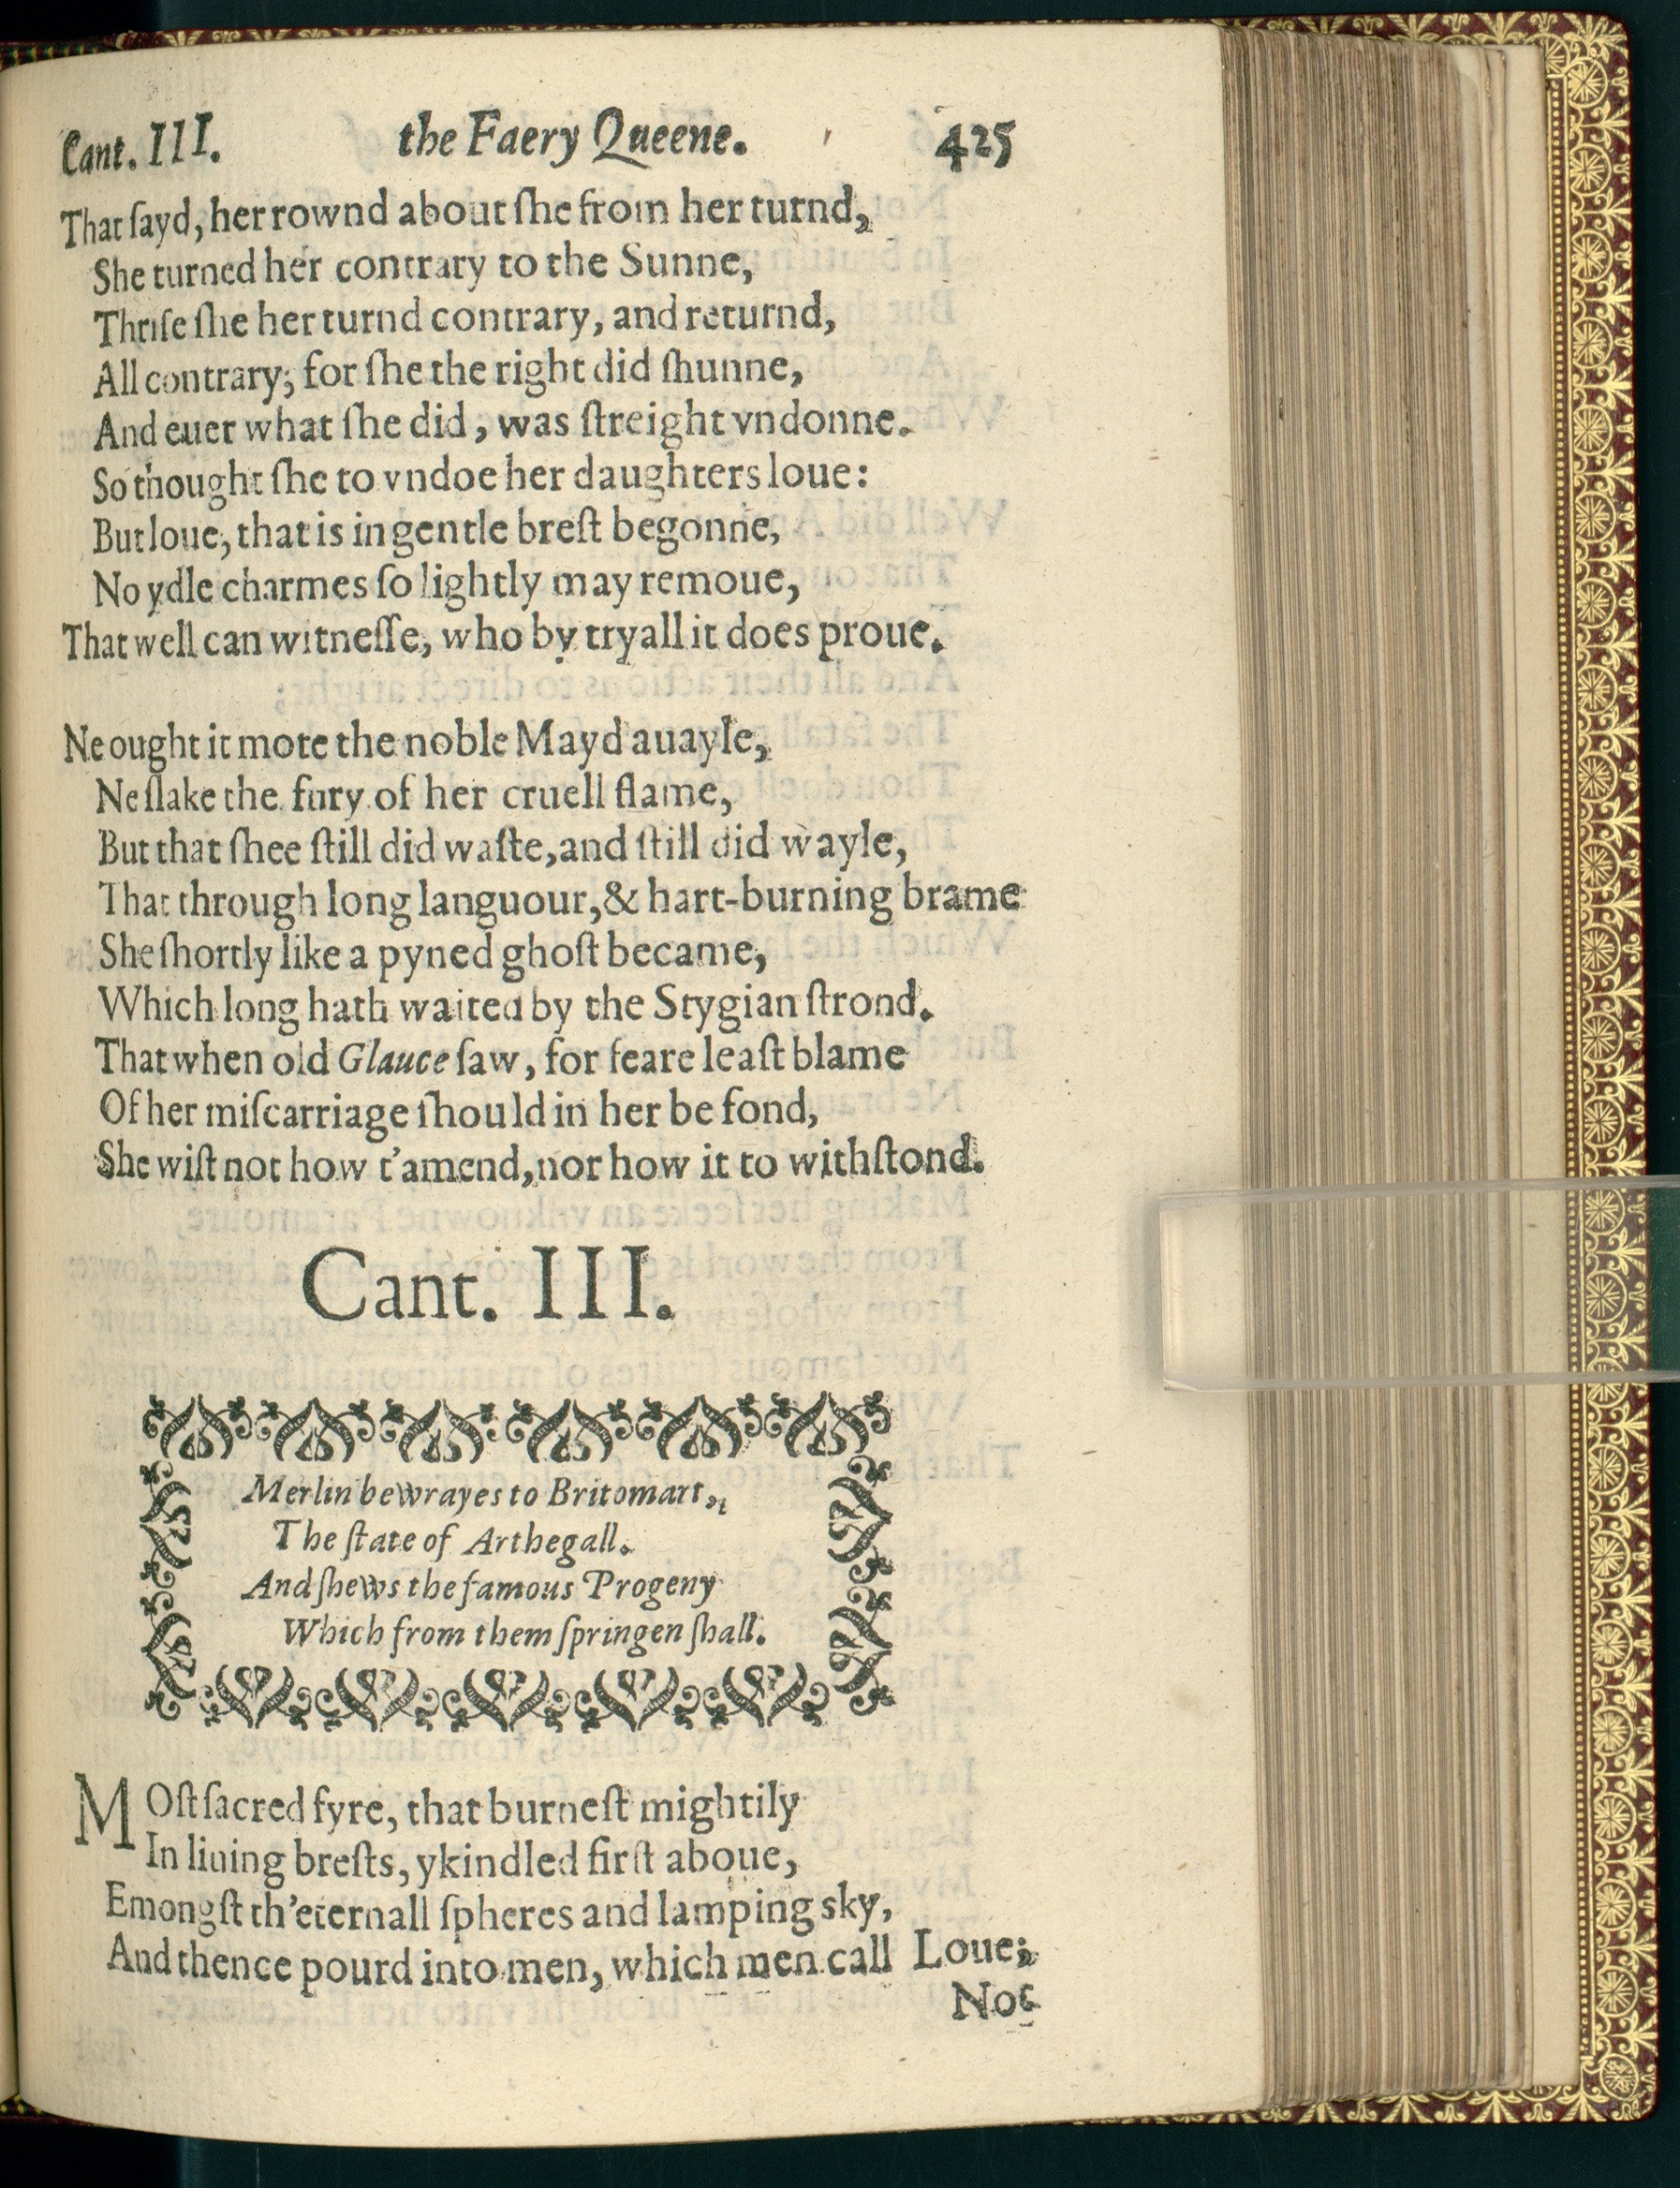 Cant. III. the Faery Queene. 425
That ſayd, her rownd about ſhe from her turnd,
She turned her contrary to the Sunne,
Thriſe ſhe her turnd contrary, and returnd,
All contrary; for ſhe the right did ſhunne,
And euer what ſhe did, was ſtreight vndonne.
So thought ſhe to vndoe her daughters loue:
But loue, that is in gentle breſt begonne,
No ydle charmes ſo lightly may remoue,
That well can witneſſe, who by tryall it does proue.
Ne ought it mote the noble Mayd auayle,
Ne ſlake the fury of her cruell flame,
But that ſhee ſtill did waſte, and ſtill did wayle,
That through long languour, & hart-burning brame
She ſhortly like a pyned ghoſt became,
Which long hath waited by the Stygian ſtrond.
That when old Glauce ſaw, for feare leaſt blame
Of her miſcarriage ſhould in her be fond,
She wiſt not how t'amend, nor how it to withſtond.
Cant. III.
Merlin bewrayes to Britomart,
The ſtate of Arthegall.
And ſhews the famous Progeny
Which from them ſpringen ſhall.
MOſt ſacred fyre, that burneſt mightily
In liuing breſts, ykindled firſt aboue,
Emongſt th'eternall ſpheres and lamping sky,
And thence pourd into men, which men call Loue;
Not